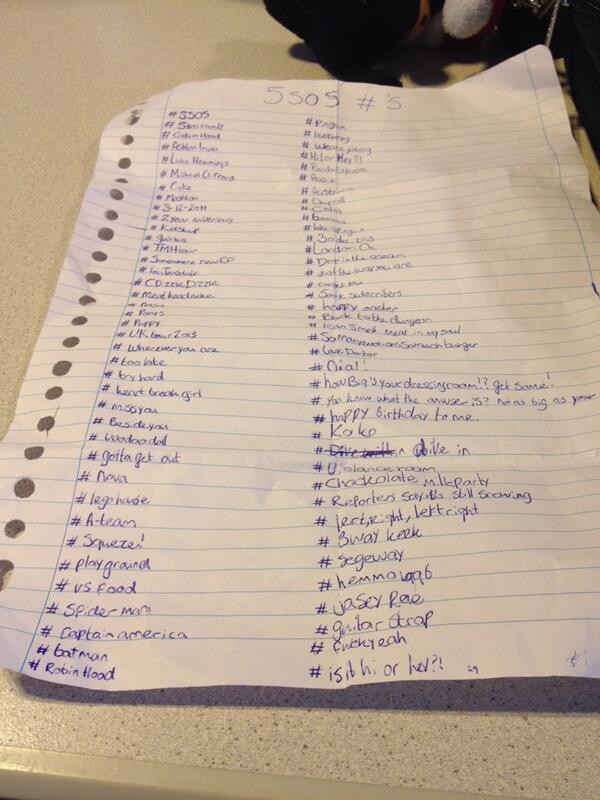 5SOS #'s
# 5SOS
# 5sosfamily
# Calum Hood
# Ashton Irwin
# Luke Hemmings
# Michael Clifford
# Cake
# Mashton
# 3-12-2011
# 2 year aniversary
# Ketchup
# TMHtour
# Somewhere new EP
# CDizzle Dizzle
# Meant headache
# Puppy
# UK tour 2013
# Wherever you are
# too late
# try hard
# heart break girl
# miss you
# Beside you
# Voodoo doll
# gotta get out
# Nova
# lego house
# A-team
# Squeze!
# playground
# VS. Food
# Spider man
# Captain america
# batman
# Robin Hood
# Hi or Hey?!
# London O2
# Drop in the ocean
# Just the way you are
# 500K subscribers
# happy easter
# Back to the dungeon
# I can smell meat in my soul
# Love Doctor
# Nial!
# how Big's your dressing room!? get some!
# you know what the answer is? not as big as your
# happy birthday to me.
# Koko
# Dive in
# Chockolate milk party
# Reporters say its still snowing
# left,right, left right
# 3way keek
# segeway
# hemmo1996
# jasey Rae
# guitar strap
# fuckyeah
# is it hi or hey?!